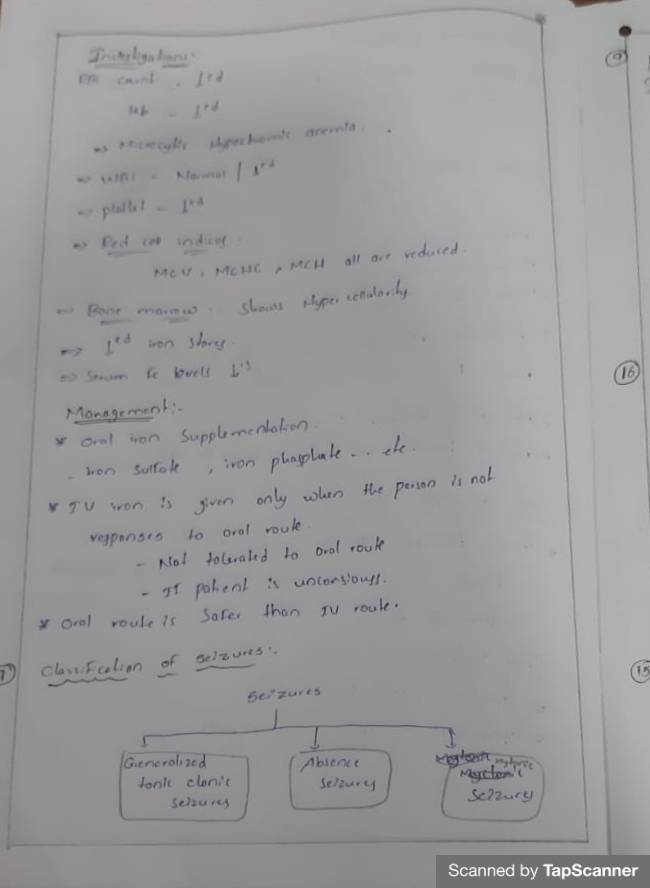 Investigations:-
RBC count - ↓ed
Hb - ↓ed
⇒ Microcytic Hypochromic anemia.
⇒ WBC - Normal / ↓ed
⇒ platlet - ↓ed
⇒ Red cell indices:
MCV, MCHC, MCH all are reduced.
⇒ Bone marrow: Shows Hyper cellularity
⇒ ↓ed iron stores.
⇒ Serum Fe levels ↓'s
Management:-
* Oral iron Supplementation.
- iron Sulfate, iron phosphate... etc.
* IV iron is given only when the person is not
responses to oral route.
- Not tolerated to oral route
- If patient is unconsiouss.
* Oral route is Safer than IV route.
Classification of Seizures:-
Seizures
Generalized
tonic clonic
seizures
Absence
seizures
Seizures
9
16
15
Scanned by TapScanner